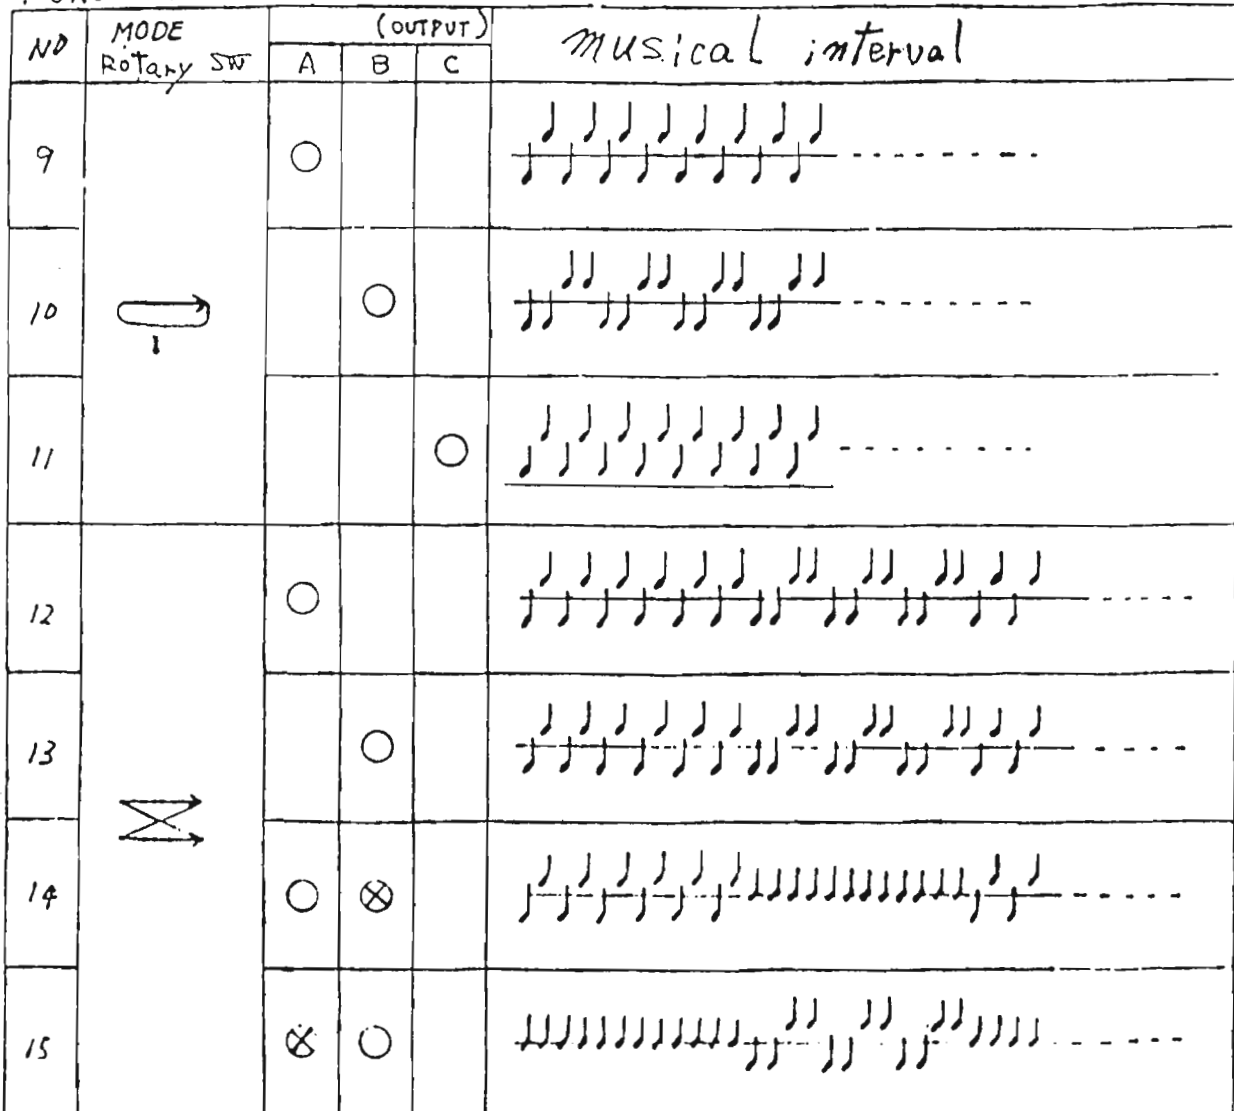 NO
MODE
Rotary SW
(OUTPUT)
A B C
musical interval
9
10
1
11
12
13
14
15